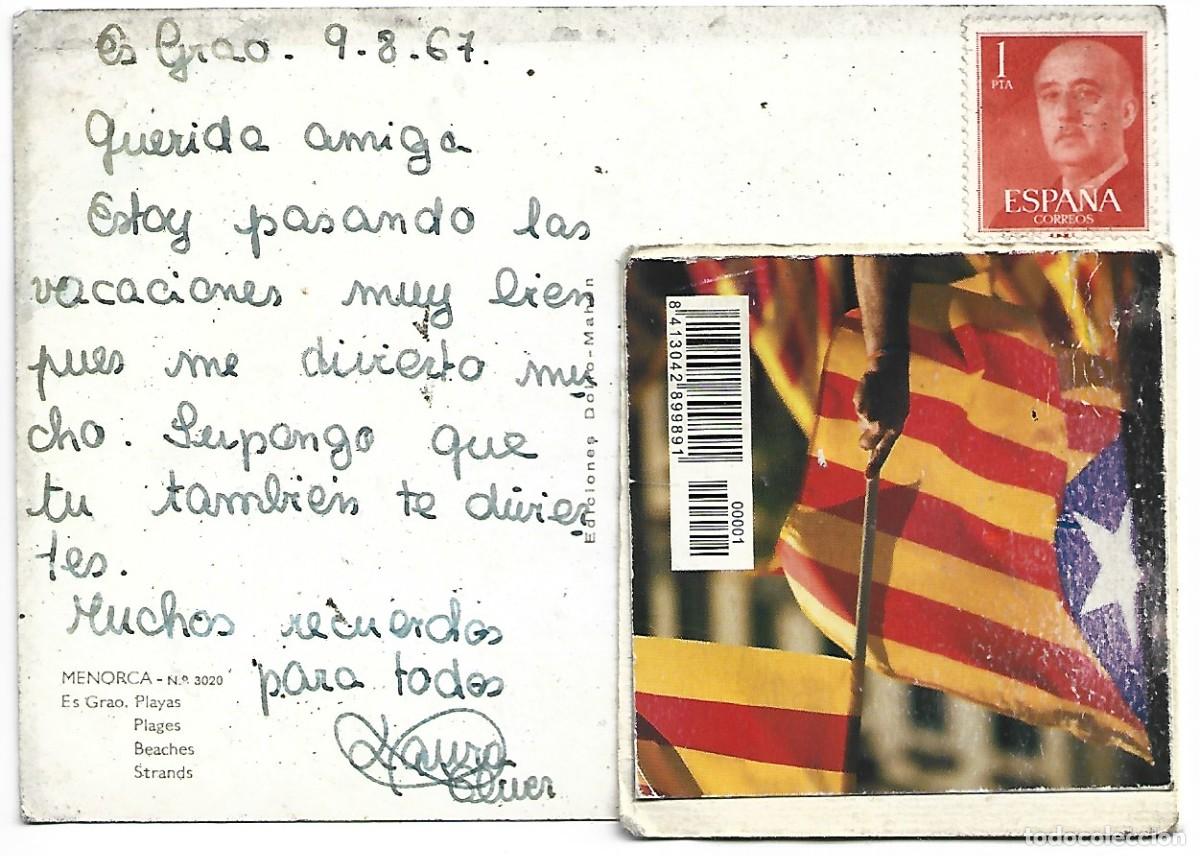 Es Grao. 9-8-67.
Querida amiga
Estoy pasando las
vacaciones muy bien
pues me divierto mu
cho. Supongo que
tu tambien te divier
tes.
Muchos recuerdos
para todos
Laura
Oliver
MENORCA - N.º 3020
Es Grao. Playas
Plages
Beaches
Strands
Ediciones
1
PTA
ESPAÑA
CORREOS
8 413042 899891
00001
todocoleccion